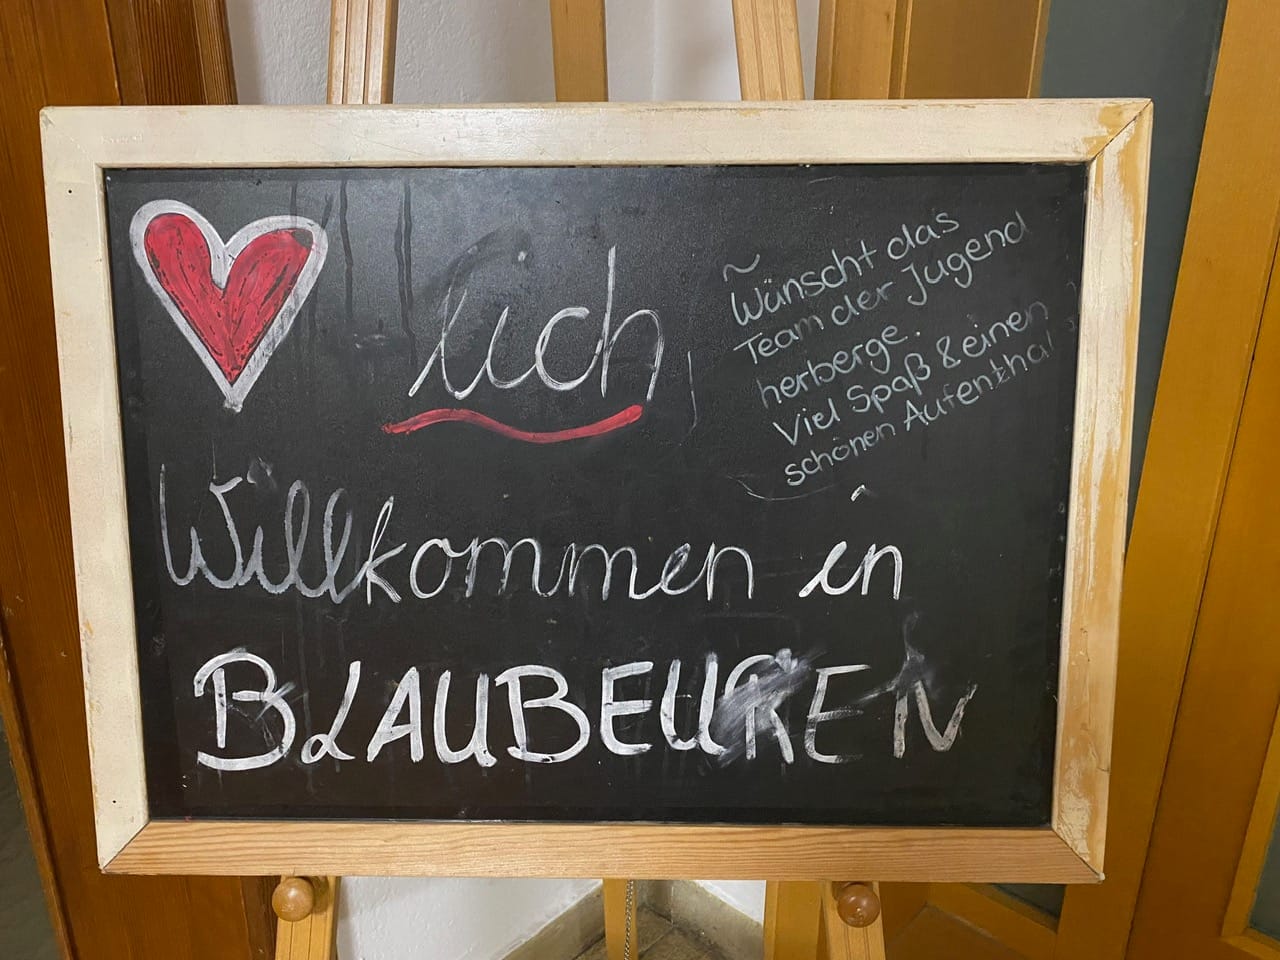 lich
Willkommen in
BLAUBEUREN
~
Wünscht das
Team der Jugend
herberge.
Viel Spaß & einen
schönen Aufenthal